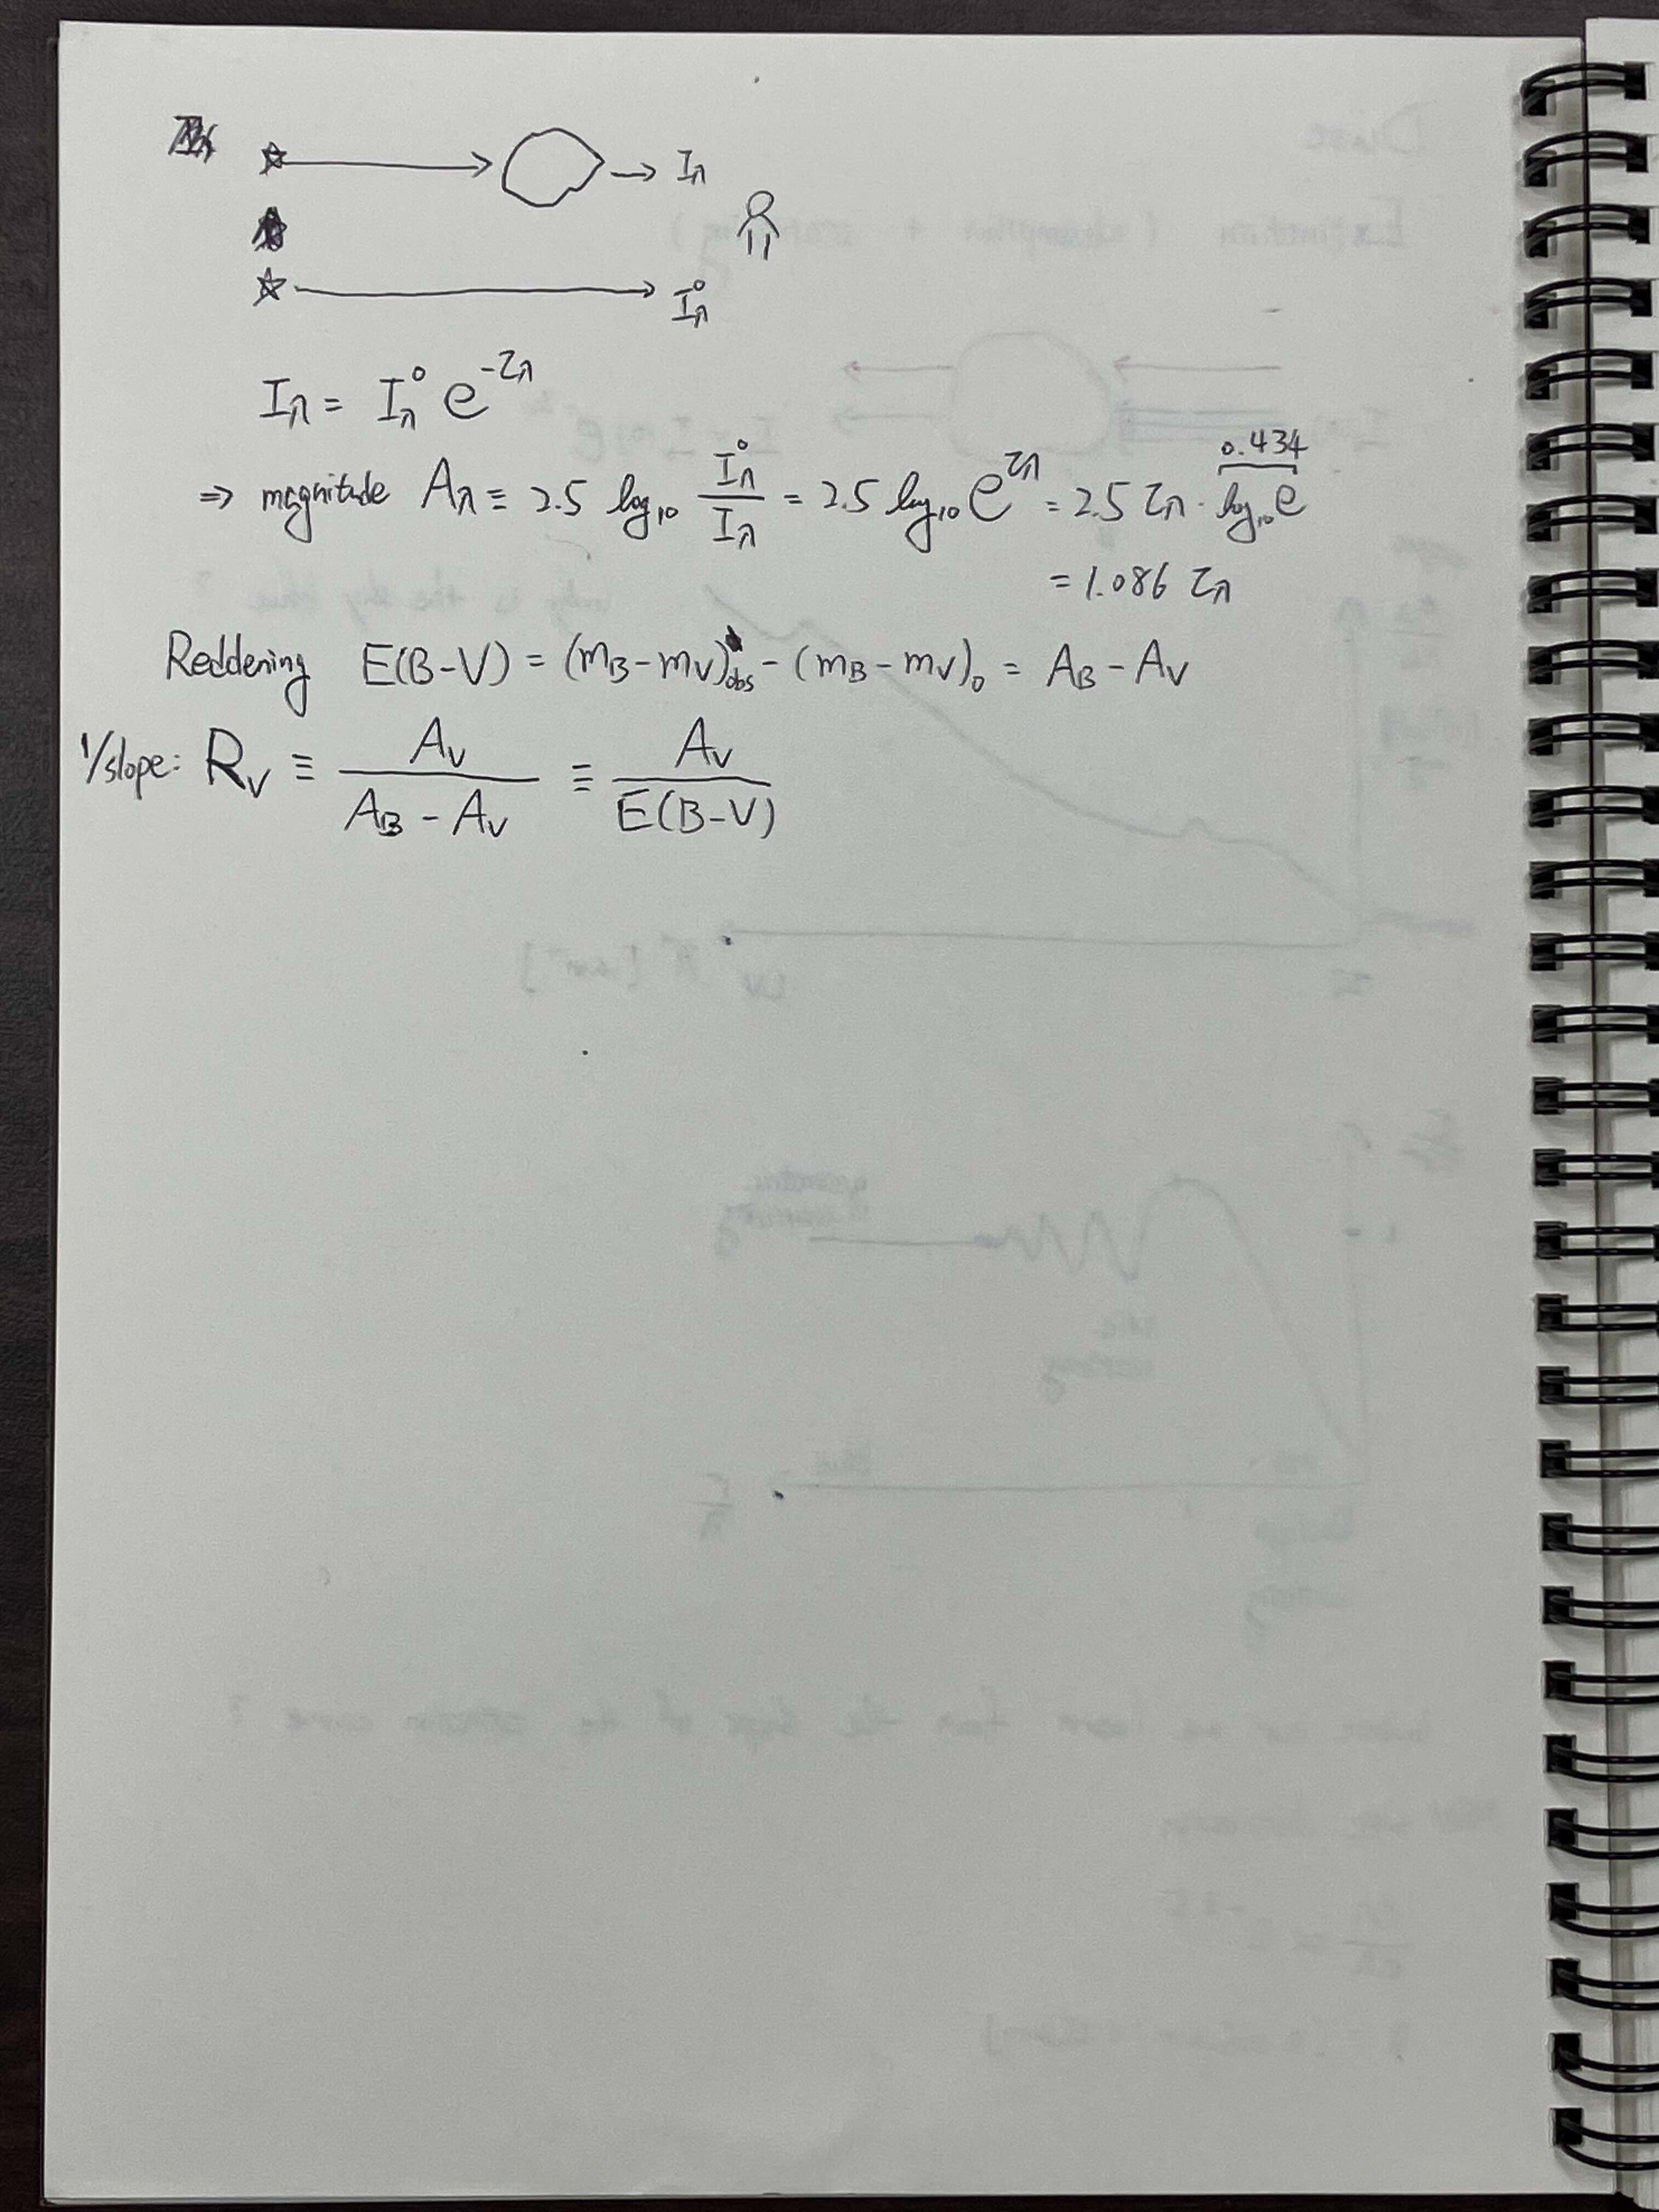 I_λ
I_λ^0
I_λ = I_λ^0 e^{-τ_λ}
0.434
⇒ magnitude A_λ ≡ 2.5 log_10 I_λ^0 / I_λ = 2.5 log_10 e^{τ_λ} = 2.5 τ_λ · log_10 e
= 1.086 τ_λ
Reddening E(B-V) = (m_B - m_V)_obs - (m_B - m_V)_0 = A_B - A_V
1/slope: R_V ≡ A_V / (A_B - A_V) ≡ A_V / E(B-V)